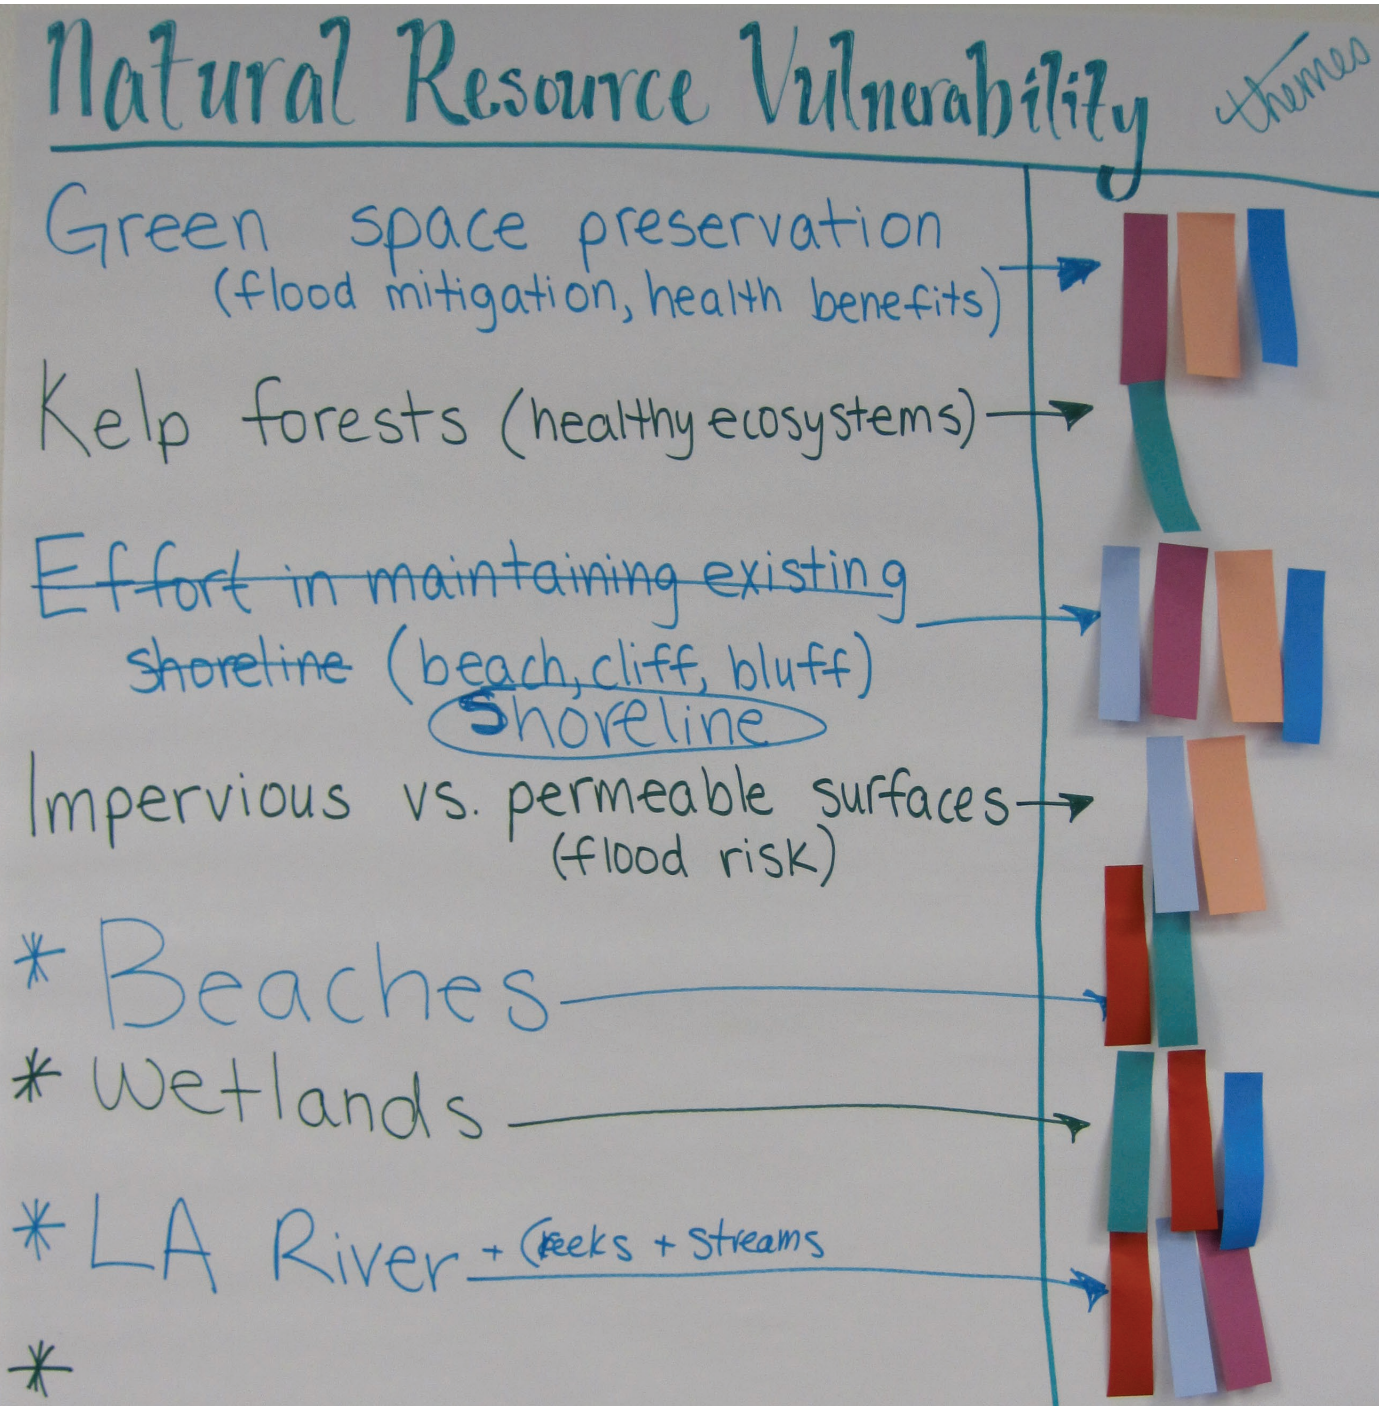 Natural Resource Vulnerability themes
Green space preservation
(flood mitigation, health benefits)
Kelp forests (healthy ecosystems)
Effort in maintaining existing
shoreline (beach, cliff, bluff)
Shoreline
Impervious vs. permeable surfaces
(flood risk)
* Beaches
* Wetlands
* LA River + Creeks + Streams
*